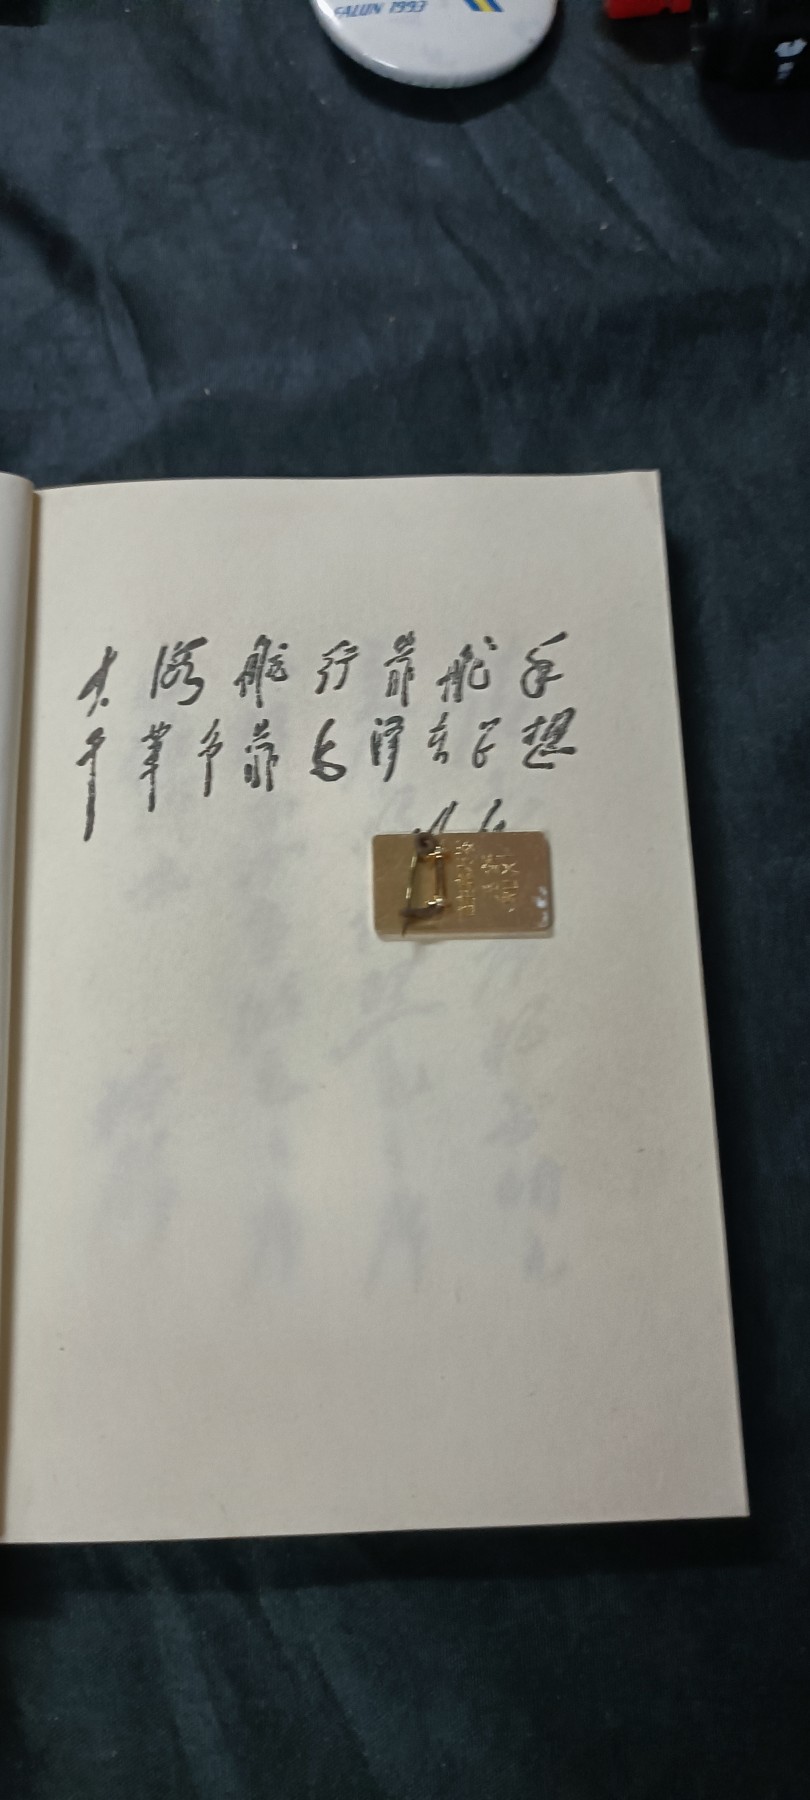 FALUN 1993
大海航行靠舵手
干革命靠毛泽东思想